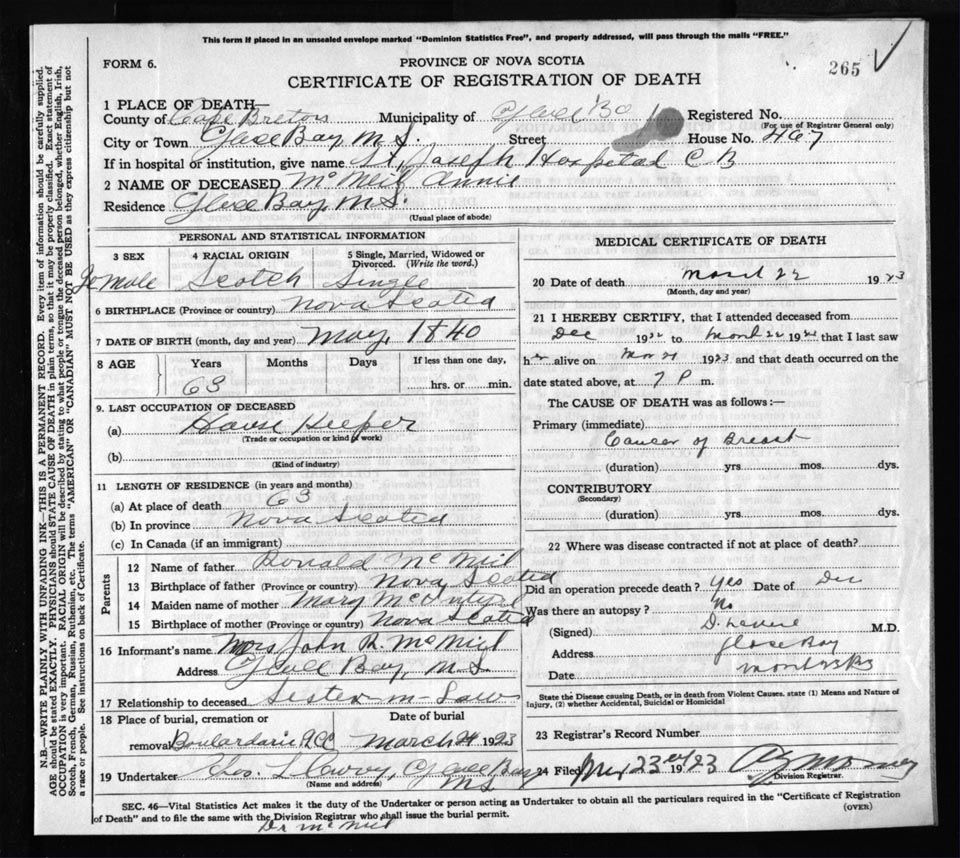 This form if placed in an unsealed envelope marked "Dominion Statistics Free", and properly addressed, will pass through the mails "FREE."
FORM 6.
PROVINCE OF NOVA SCOTIA
265
CERTIFICATE OF REGISTRATION OF DEATH
1 PLACE OF DEATH—
County of Cape Breton Municipality of Glace Bay Registered No.
(For use of Registrar General only)
City or Town Glace Bay N.S. Street House No. 467
If in hospital or institution, give name St. Joseph Hospital C B
2 NAME OF DECEASED McNeil Annie
Residence Glace Bay N.S.
(Usual place of abode)
PERSONAL AND STATISTICAL INFORMATION
3 SEX 4 RACIAL ORIGIN 5 Single, Married, Widowed or Divorced. (Write the word.)
Female Scotch Single
6 BIRTHPLACE (Province or country) Nova Scotia
7 DATE OF BIRTH (month, day and year) May, 1840
8 AGE Years Months Days If less than one day,
63 hrs. or min.
9. LAST OCCUPATION OF DECEASED
(a) House Keeper
(Trade or occupation or kind of work)
(b)
(Kind of industry)
11 LENGTH OF RESIDENCE (in years and months)
(a) At place of death 63
(b) In province Nova Scotia
(c) In Canada (if an immigrant)
Parents
12 Name of father Ronald McNeil
13 Birthplace of father (Province or country) Nova Scotia
14 Maiden name of mother Mary
15 Birthplace of mother (Province or country) Nova Scotia
16 Informant's name Mrs John R. McNeil
Address Glace Bay, N.S.
17 Relationship to deceased Sister in Law
18 Place of burial, cremation or removal Date of burial
Boulardarie March 24 1923
19 Undertaker Glace Bay
(Name and address) N.S.
MEDICAL CERTIFICATE OF DEATH
20 Date of death March 22 1923
(Month, day and year)
21 I HEREBY CERTIFY, that I attended deceased from
Dec 19 to March 22 19 that I last saw
h alive on Mar 21 1923 and that death occurred on the
date stated above, at 7 P m.
The CAUSE OF DEATH was as follows:—
Primary (immediate)
Cancer of Breast
(duration) yrs. mos. dys.
CONTRIBUTORY
(Secondary)
(duration) yrs. mos. dys.
22 Where was disease contracted if not at place of death?
Did an operation precede death? Yes Date of Dec
Was there an autopsy? No
(Signed) M.D.
Address Glace Bay
Date
State the Disease causing Death, or in death from Violent Causes. state (1) Means and Nature of Injury, (2) whether Accidental, Suicidal or Homicidal
23 Registrar's Record Number
24 Filed Mar 23 1923
Division Registrar.
SEC. 46—Vital Statistics Act makes it the duty of the Undertaker or person acting as Undertaker to obtain all the particulars required in the "Certificate of Registration
of Death" and to file the same with the Division Registrar who shall issue the burial permit. (OVER)
Dr McNeil
N.B.—WRITE PLAINLY WITH UNFADING INK—THIS IS A PERMANENT RECORD. Every item of information should be carefully supplied.
AGE should be stated EXACTLY. PHYSICIANS should STATE CAUSE OF DEATH in plain terms, so that it may be properly classified. Exact statement of
OCCUPATION is very important. RACIAL ORIGIN will be described by stating to what people or tongue the deceased person belonged, whether English, Irish,
Scotch, French, German, Russian, Ruthenian, etc. The terms "AMERICAN" OR "CANADIAN" MUST NOT BE USED as they express citizenship but not
a race or people. See instructions on back of Certificate.